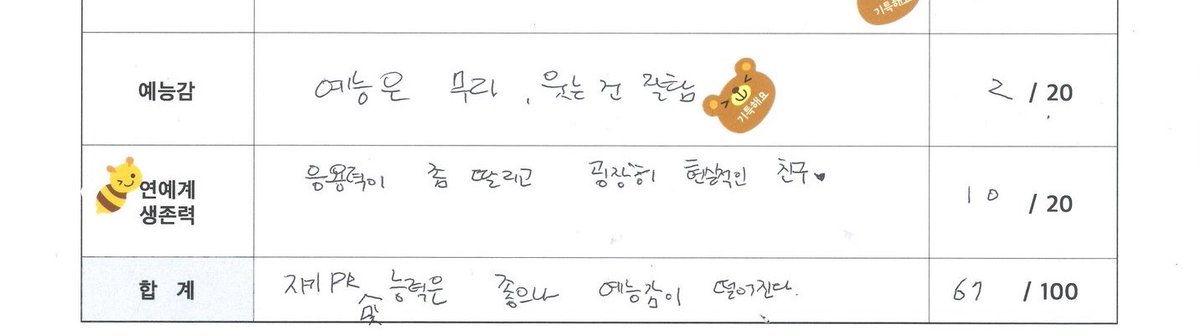 기특해요
예능감 예능은 무리, 웃는건 잘함 기특해요 2 / 20
연예계 응용력이 좀 딸리고 굉장히 현실적인 친구♥ 10 / 20
생존력
합 계 자기PR 및 능력은 좋으나 예능감이 떨어진다. 67 / 100